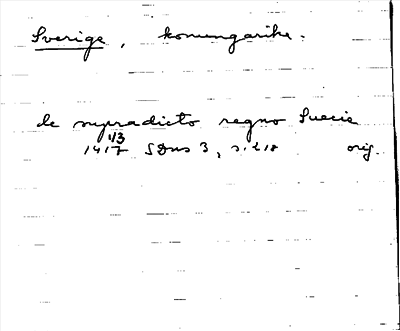 Sverige, konungarike.
de supradicto regno Suecie
1/3
1417 SDns 3, s. 210 orig.